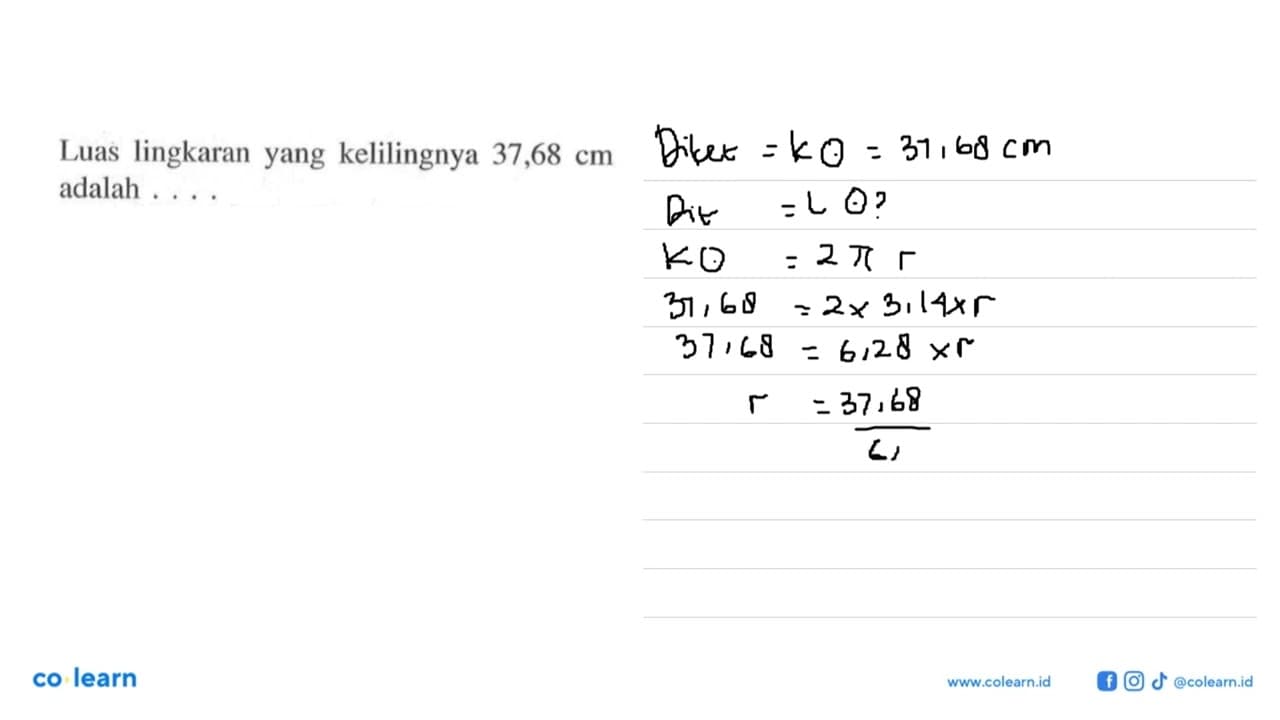 Luas lingkaran yang kelilingnya 37,68 cm
adalah . . . .
Diket = K⊙ = 37,68 cm
Dit = L ⊙?
K⊙ = 2 π r
37,68 = 2 x 3,14 x r
37,68 = 6,28 x r
r = 37,68
6,
co learn
www.colearn.id
@colearn.id